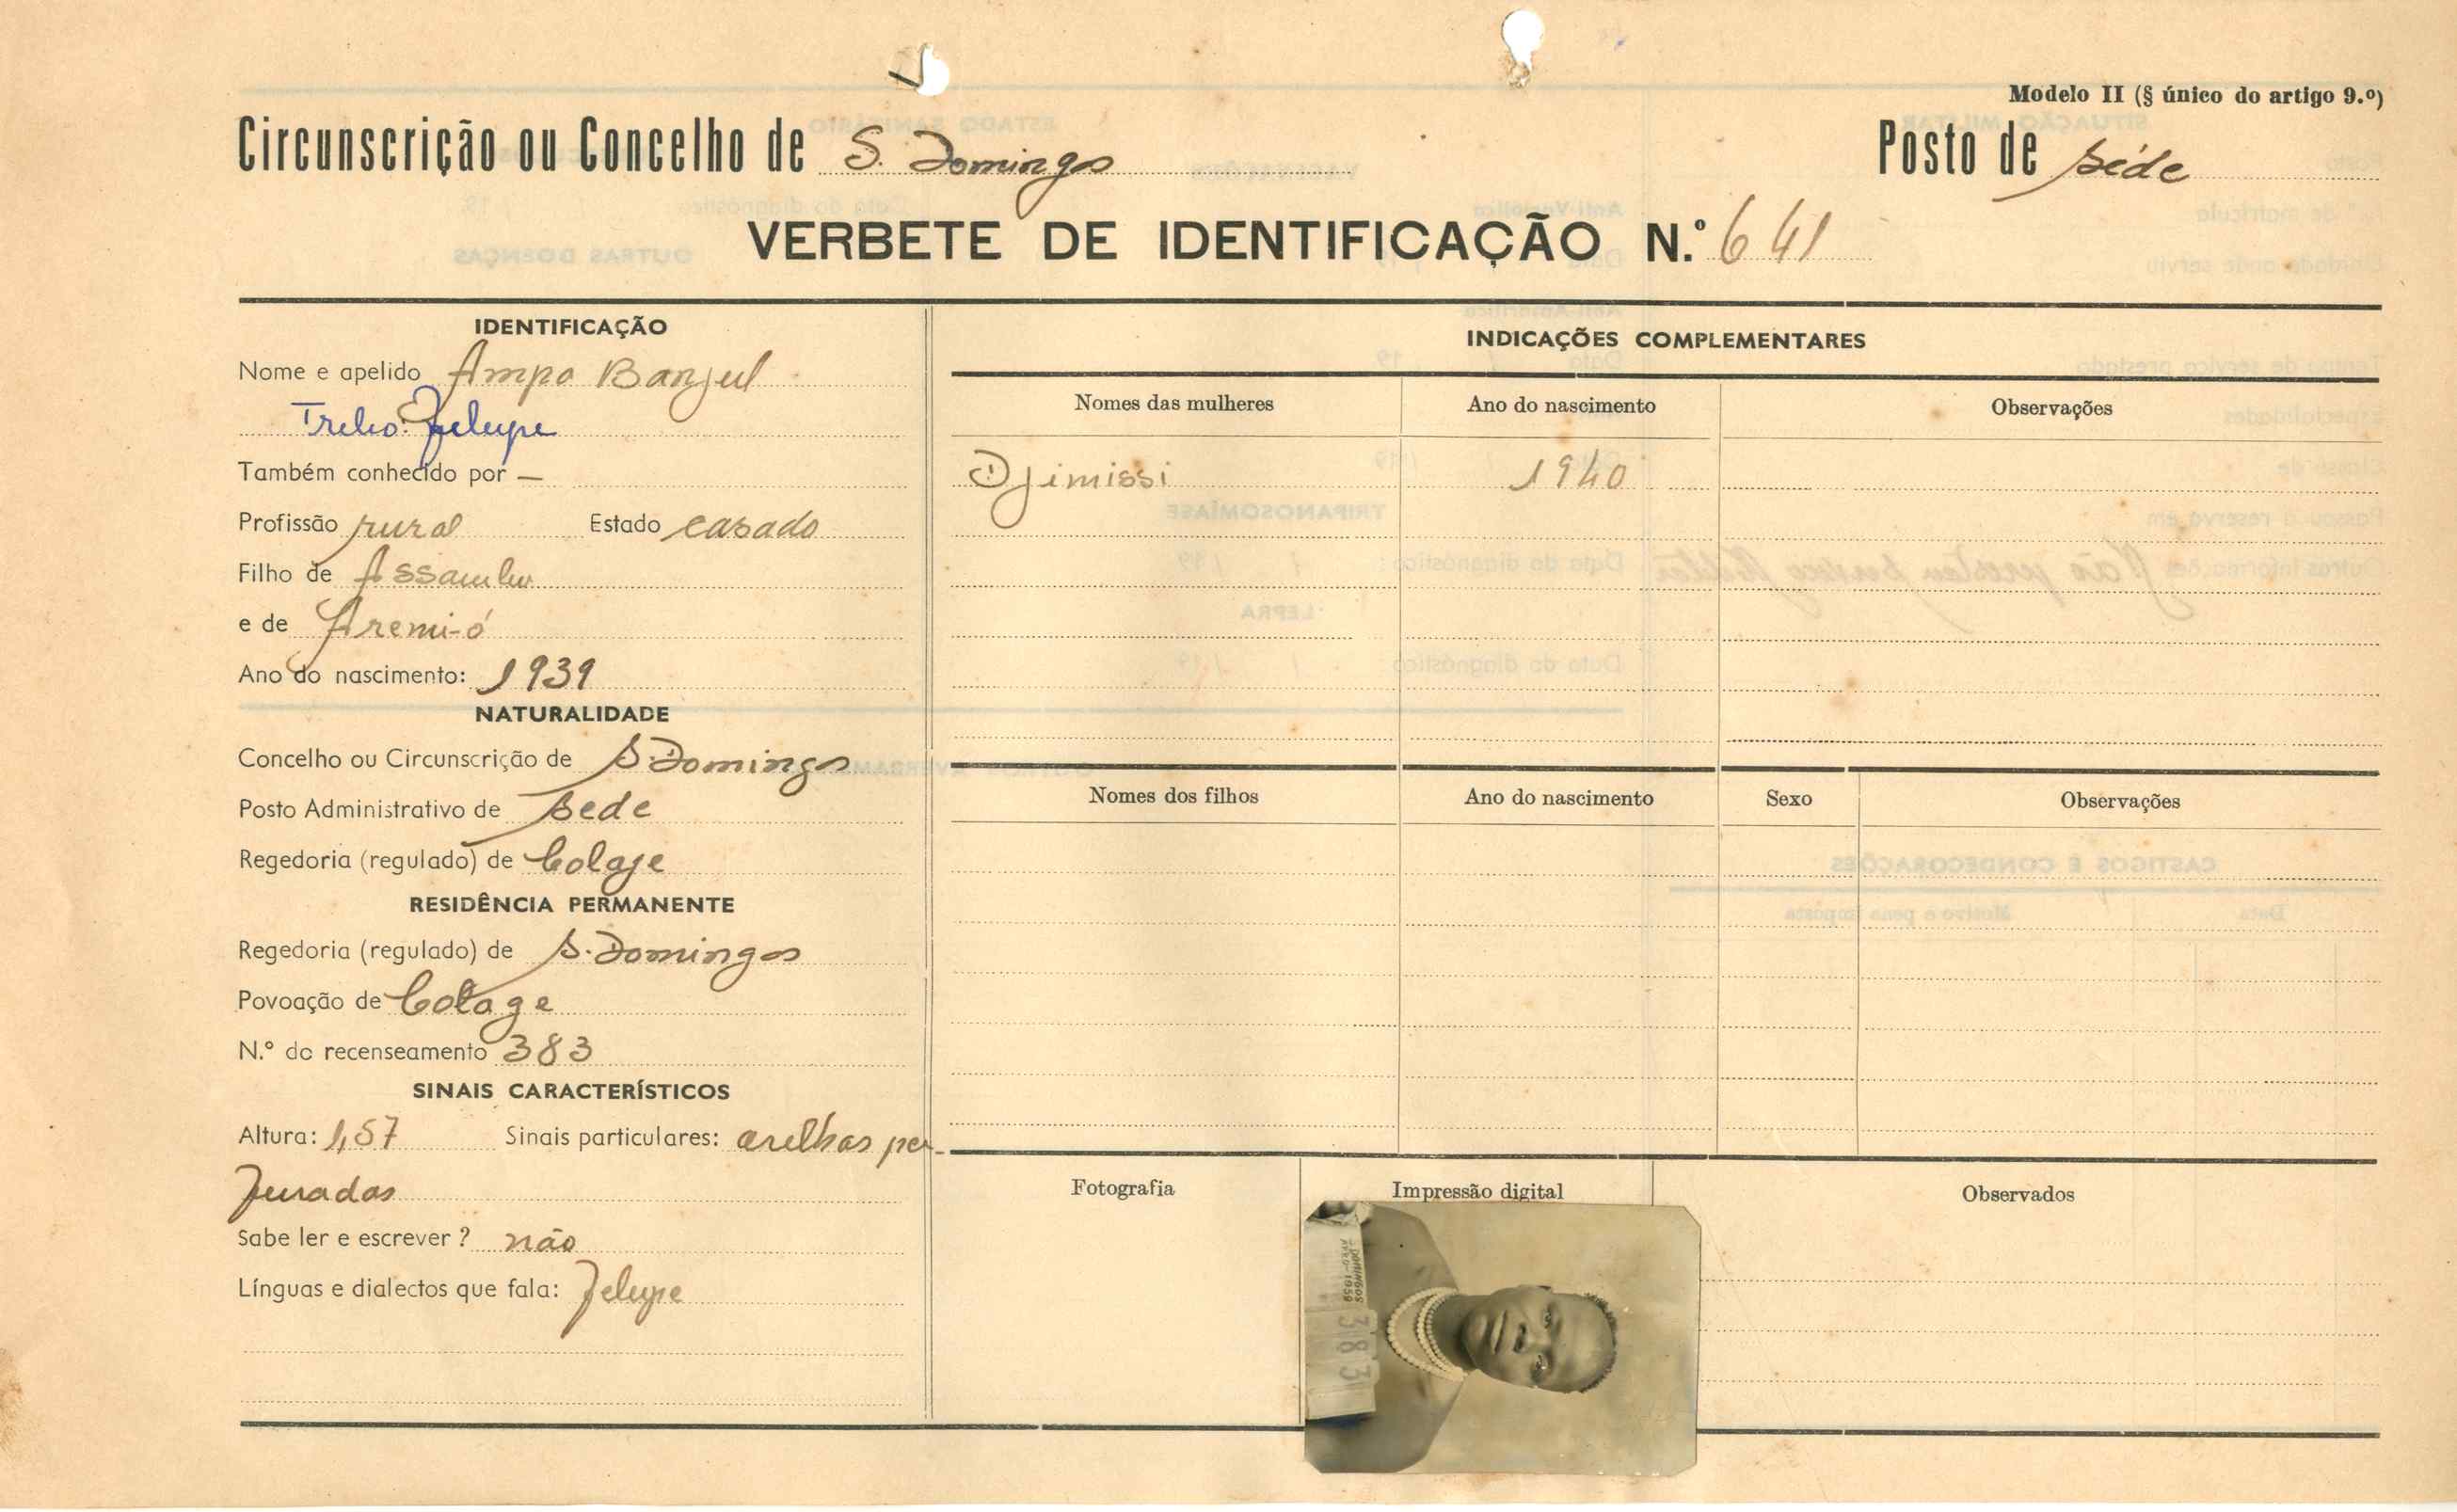 Modelo II (§ único do artigo 9.º)
Circunscrição ou Concelho de S. Domingos
Posto de séde
VERBETE DE IDENTIFICAÇÃO N.º 641
IDENTIFICAÇÃO
Nome e apelido Ampa Banjul
Felupe
Também conhecido por —
Profissão rural Estado casado
Filho de Assambu
e de Aremi-ó
Ano do nascimento: 1939
NATURALIDADE
Concelho ou Circunscrição de S. Domingos
Posto Administrativo de Sede
Regedoria (regulado) de Colage
RESIDÊNCIA PERMANENTE
Regedoria (regulado) de S. Domingos
Povoação de Colage
N.º do recenseamento 383
SINAIS CARACTERÍSTICOS
Altura: 1,57 Sinais particulares: orelhas per-
furadas
Sabe ler e escrever? não
Línguas e dialectos que fala: Felupe
INDICAÇÕES COMPLEMENTARES
Nomes das mulheres Ano do nascimento Observações
Djimissi 1940
Nomes dos filhos Ano do nascimento Sexo Observações
Fotografia Impressão digital Observados
DOMINGOS
1959
383